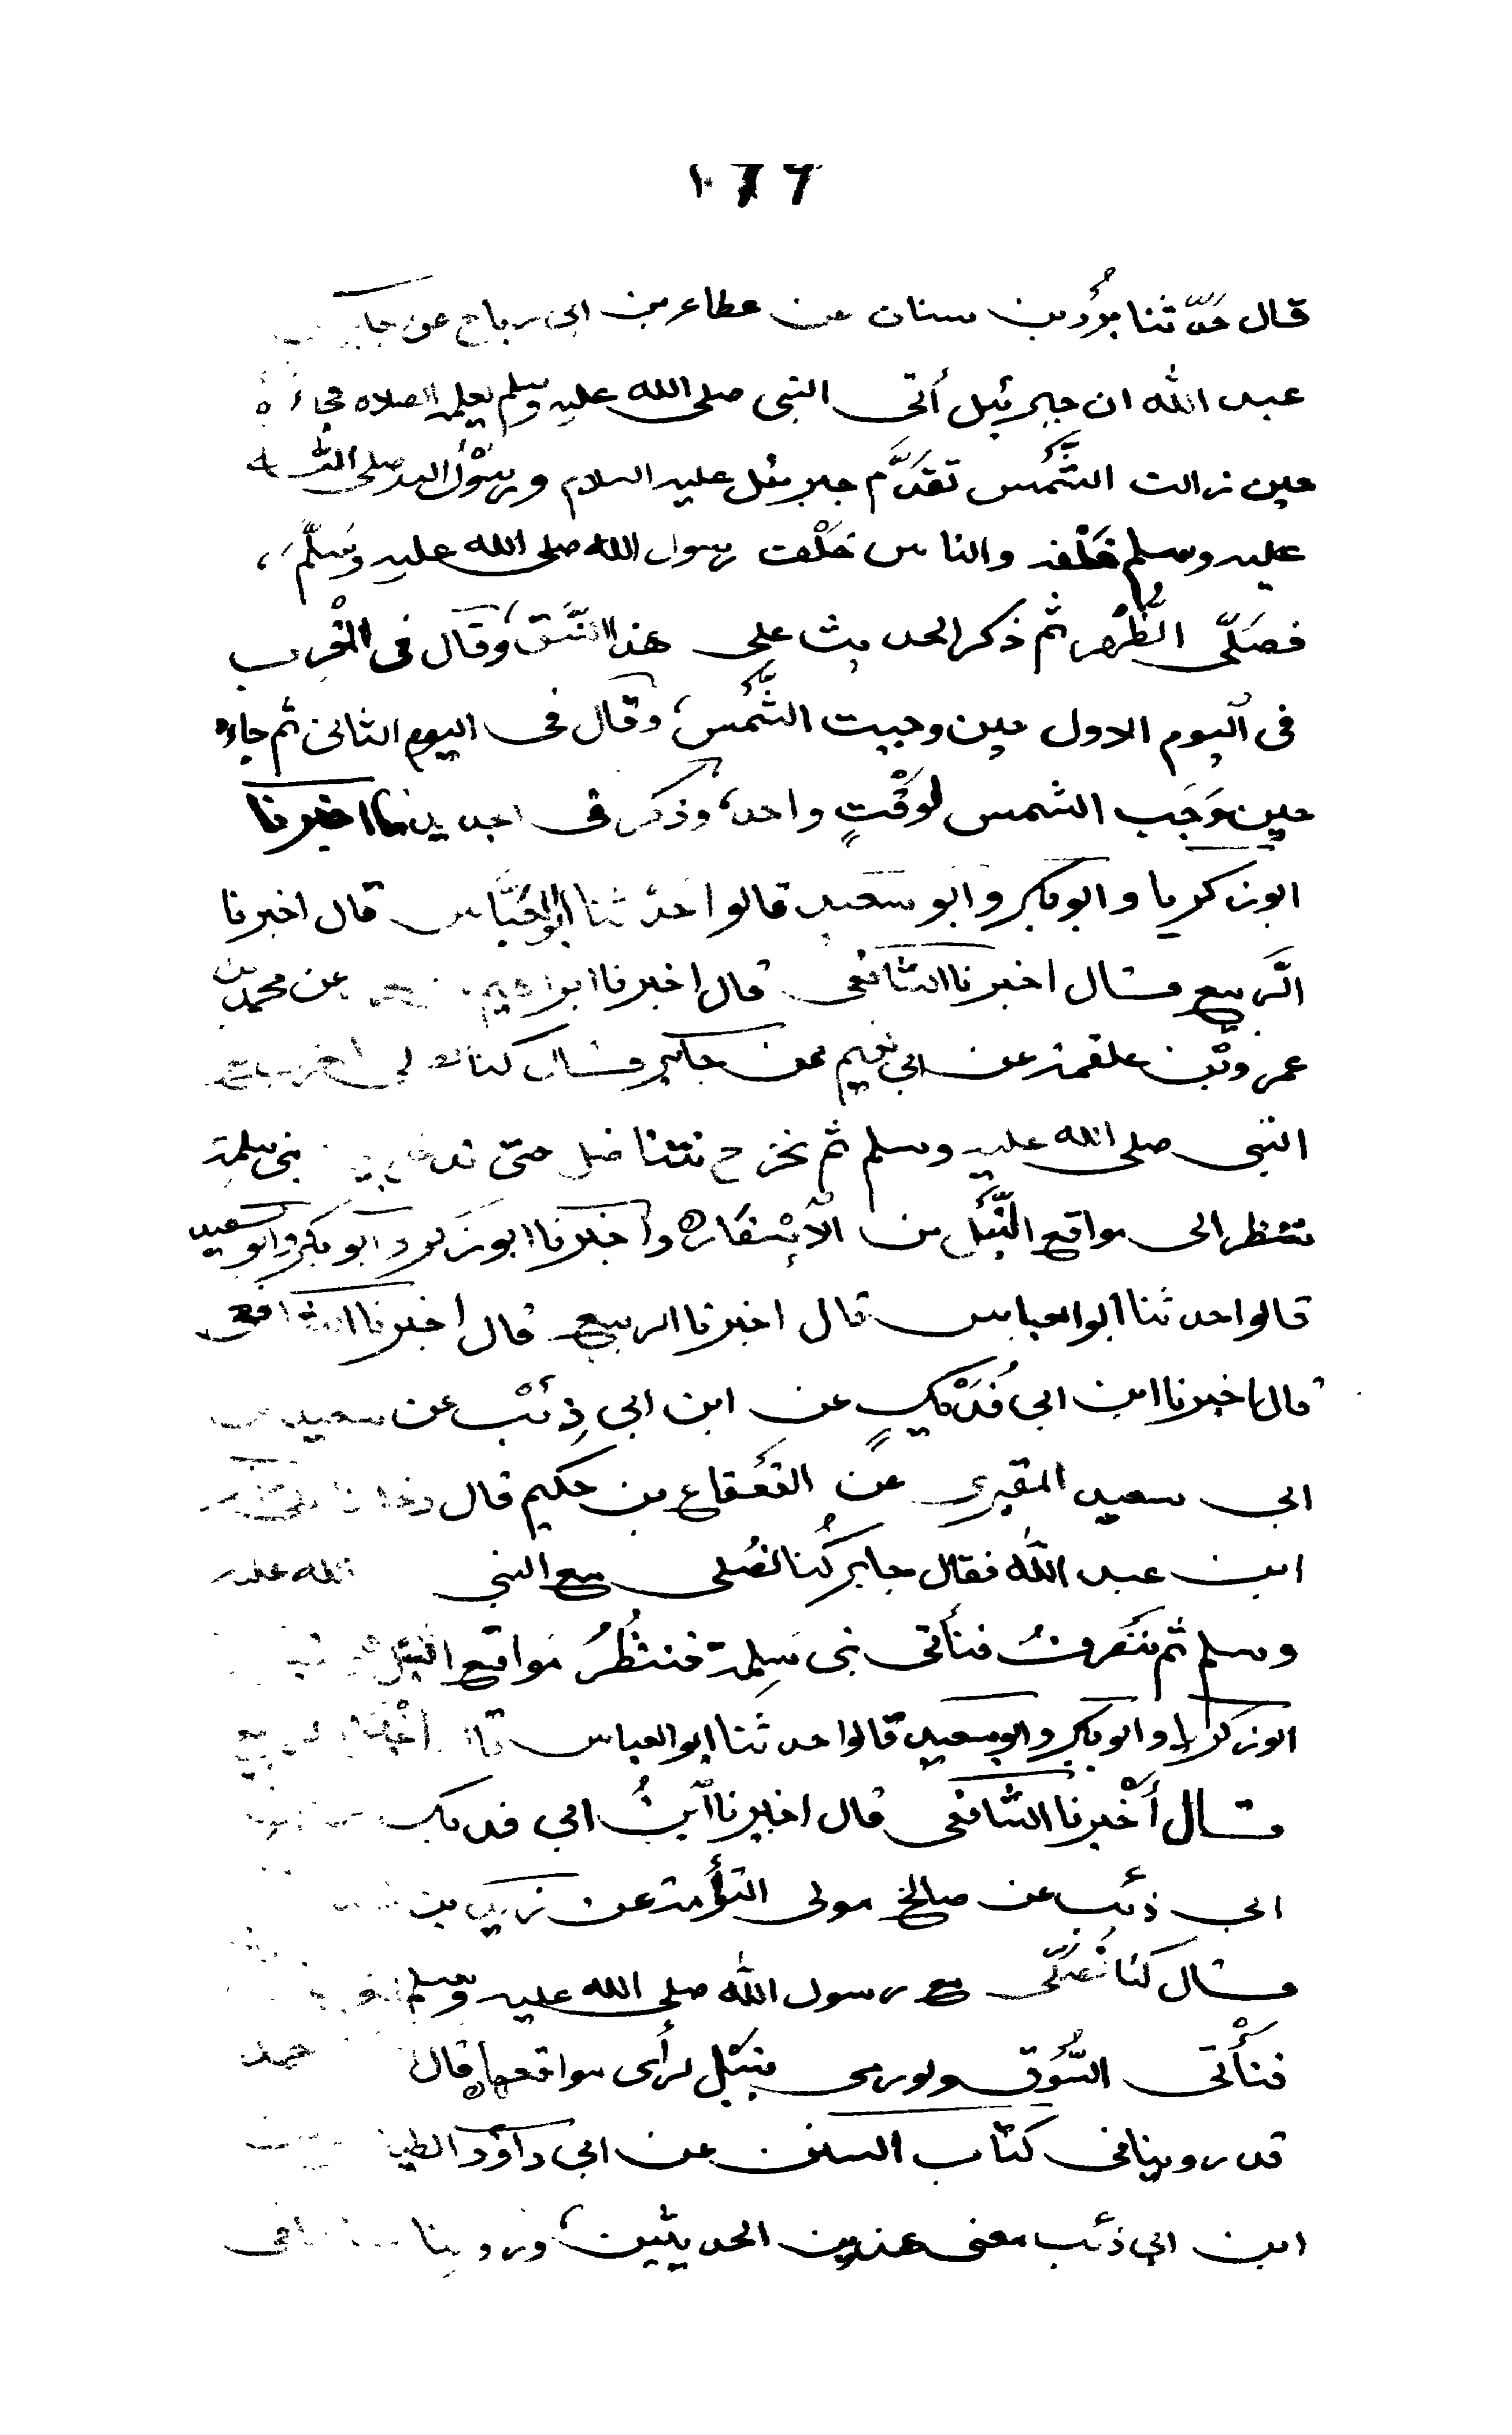 قال حدّثنا بُرْد بن سنان عن عطاء بن ابى رباح عن جابر بن
عبد الله ان جبرئيل أتى النبى صلى الله عليه وسلم يعلمه الصلاه فجاءه
حين زالت الشَّمْس تقدَّم جبرئيل عليه السلام ورسُوْل الله صلى الله
عليه وسلم خَلْفه والناس خَلْف رسول الله صلى الله عليه وَسَلَّم،
فصَلَّى الظُّهْر ثم ذكر الحديث على هذا النَّسَق، وقال فى المغْرِب
فى اليوم الاول حين وجبت الشَّمْس، وقال فى اليوم الثانى ثم جاءه
حين وَجَبت الشمس لوَقْتٍ واحد، وذكر فى اخبرنا
ابو زكريا وابو بكر وابو سعيد قالوا حدّثنا ابو العَبَّاس قال اخبرنا
الرَّبيع قال اخبرنا الشافعى قال اخبرنا ابراهيم عن محمد بن
عمرو بْن علقمة عن ابى نعيم عن جابر قال كنا
النبى صلى الله عليه وسلم ثم نخرج نتناضل حتى بنى سلمة
ننظر الى مواقع النَّبْل من الْاِسْفَار ه واخبرنا ابو زكريا وابو بكر وابو سعيد
قالوا حدثنا ابو العباس قال اخبرنا الربيع قال اخبرنا الشافعى
قال اخبرنا ابن ابى فُدَيْكٍ عن ابن ابى ذِئْب عن سعيد بن
ابى سعيد المقبرى عن القَعْقاع بن حكيم قال دخلنا على جابر
ابن عبد الله فقال جابر كُنا نصُلى مع النبى الله عليه
وسلم ثم ننصرف فنأتى بنى سَلِمة فننظُرُ مَواقع النَّبْل
ابو زكريا وابو بكر وابو سعيد قالوا حدثنا ابو العباس قال أخْبَرنا الربيع
قال أَخْبرنا الشافعى قال اخبرنا ابنُ ابى فديك عن ابن
ابى ذئب عن صالح مولى التوْأَمة عن زيد بن
قال كنا نُصَلّى مع رسول الله صلى الله عليه وسلم
فنأْتى السُّوْق ولو رمى بنَبْل لرأى مواقعها ه قال احمد
قد روينا فى كتاب السنن عن ابى داؤد الطيالسى عن
ابن ابى ذئب معنى هذين الحديثين، وروينا